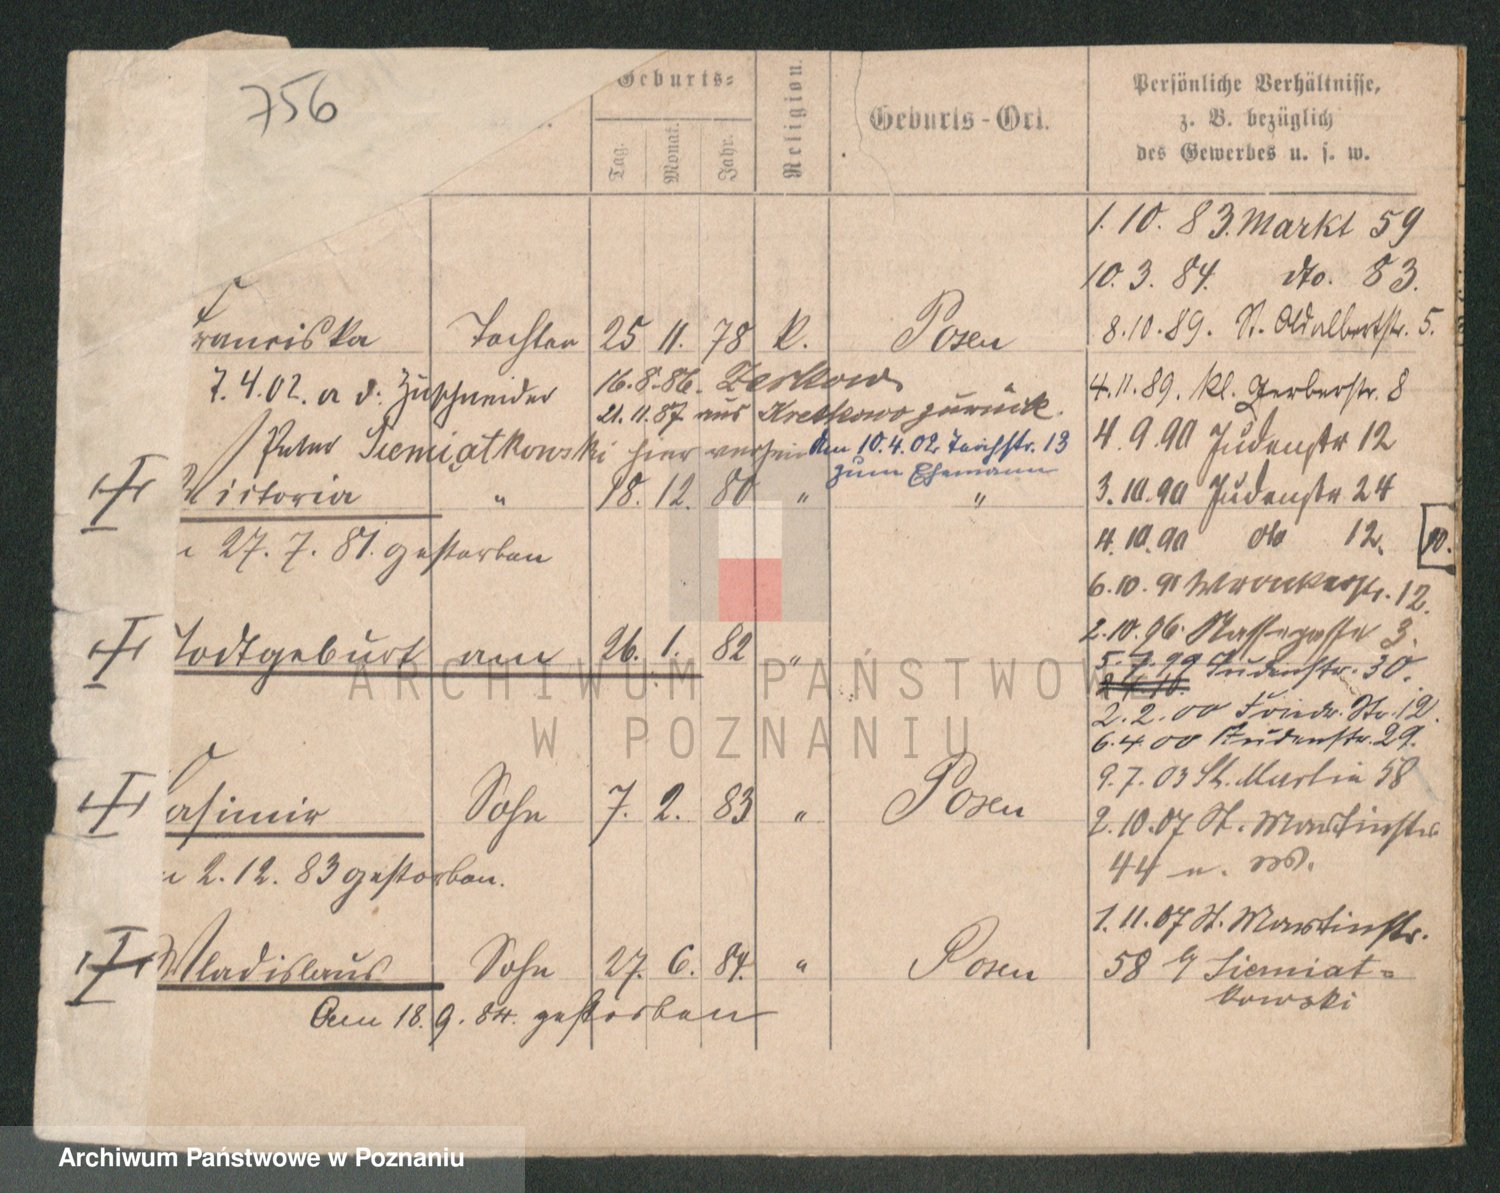 756
Geburts-
Tag.
Monat.
Jahr.
Religion.
Geburts-Ort.
Persönliche Verhältnisse,
z. B. bezüglich
des Gewerbes u. s. w.
1. 10. 83. Markt 59
10. 3. 84. dto. 83.
8. 10. 89. St. Adalbertstr. 5.
Franciska Tochter 25 11. 78 k. Posen
7. 4. 02. a d. Zuschneider 16. 8. 86. Zerkow
4. 11. 89. Kl. Gerberstr. 8
21. 11. 87 aus Kretkowo zurück.
Peter Siemiątkowski hier verh. den 10. 4. 02. Teichstr. 13
zum Ehemann
4. 9. 90 Judenstr 12
Victoria " 18. 12. 80 " "
3. 10. 90 Judenstr 24
27. 7. 81. gestorben
4. 10. 90 do 12. 10.
6. 10. 91 Wronkerstr. 12.
Todtgeburt am 26. 1. 82 "
2. 10. 96. Nassegasse 3.
5. 7. 99 Judenstr. 30.
2. 2. 00 Friedr. Str. 12.
6. 4. 00 Judenstr. 29.
9. 7. 03 St. Martin 58
Casimir Sohn 7. 2. 83 " Posen
2. 10. 07 St. Martinstr.
44
2. 12. 83 gestorben.
1. 11. 07 St. Martinstr.
58 b/ Siemiat-
kowski
Wladislaus Sohn 27. 6. 84. " Posen
Am 18. 9. 84. gestorben
ARCHIWUM PAŃSTWOWE
W POZNANIU
Archiwum Państwowe w Poznaniu